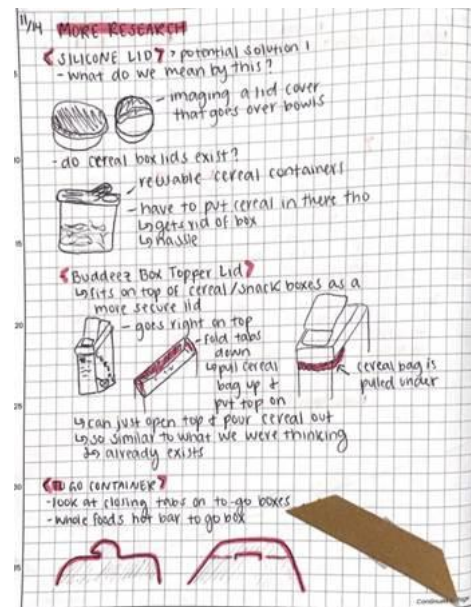 11/14 MORE RESEARCH
SILICONE LID → potential solution 1
- what do we mean by this?
- imaging a lid cover
that goes over bowls
- do cereal box lids exist?
- reusable cereal containers
- have to put cereal in there tho
↳ gets rid of box
↳ hassle
Buddeez Box Topper Lid
↳ fits on top of cereal/snack boxes as a
more secure lid
- goes right on top
- fold tabs
down
↳ pull cereal
bag up &
put top on
cereal bag is
pulled under
↳ can just open top & pour cereal out
↳ so similar to what we were thinking
↳ already exists
TO GO CONTAINER
- look at closing tabs on to-go boxes
- whole foods hot bar to go box
5
10
15
20
25
30
35